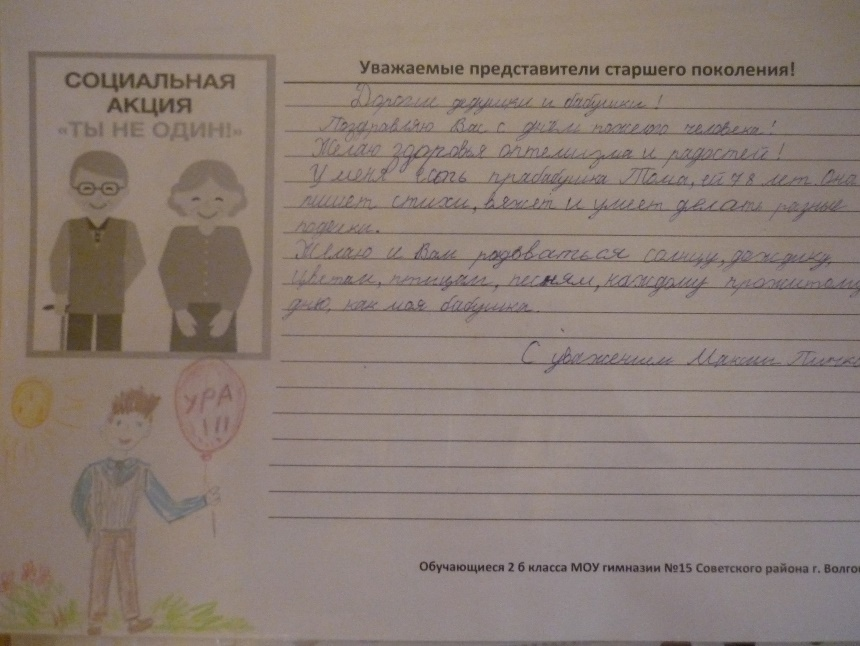 СОЦИАЛЬНАЯ
АКЦИЯ
«ТЫ НЕ ОДИН!»
Уважаемые представители старшего поколения!
Дорогие дедушки и бабушки!
Поздравляю Вас с днём пожелого человека!
Желаю здоровья оптемизма и радостей!
У меня есть прабабушка Тома, ей 78 лет. Она
пишет стихи, вяжет и умеет делать разные
поделки.
Желаю и Вам радоваться солнцу, дождику,
цветам, птицам, песням, каждому прожитому
дню, как моя бабушка.
С уважением Максим
УРА
!!!
Обучающиеся 2 б класса МОУ гимназии №15 Советского района г. Волго